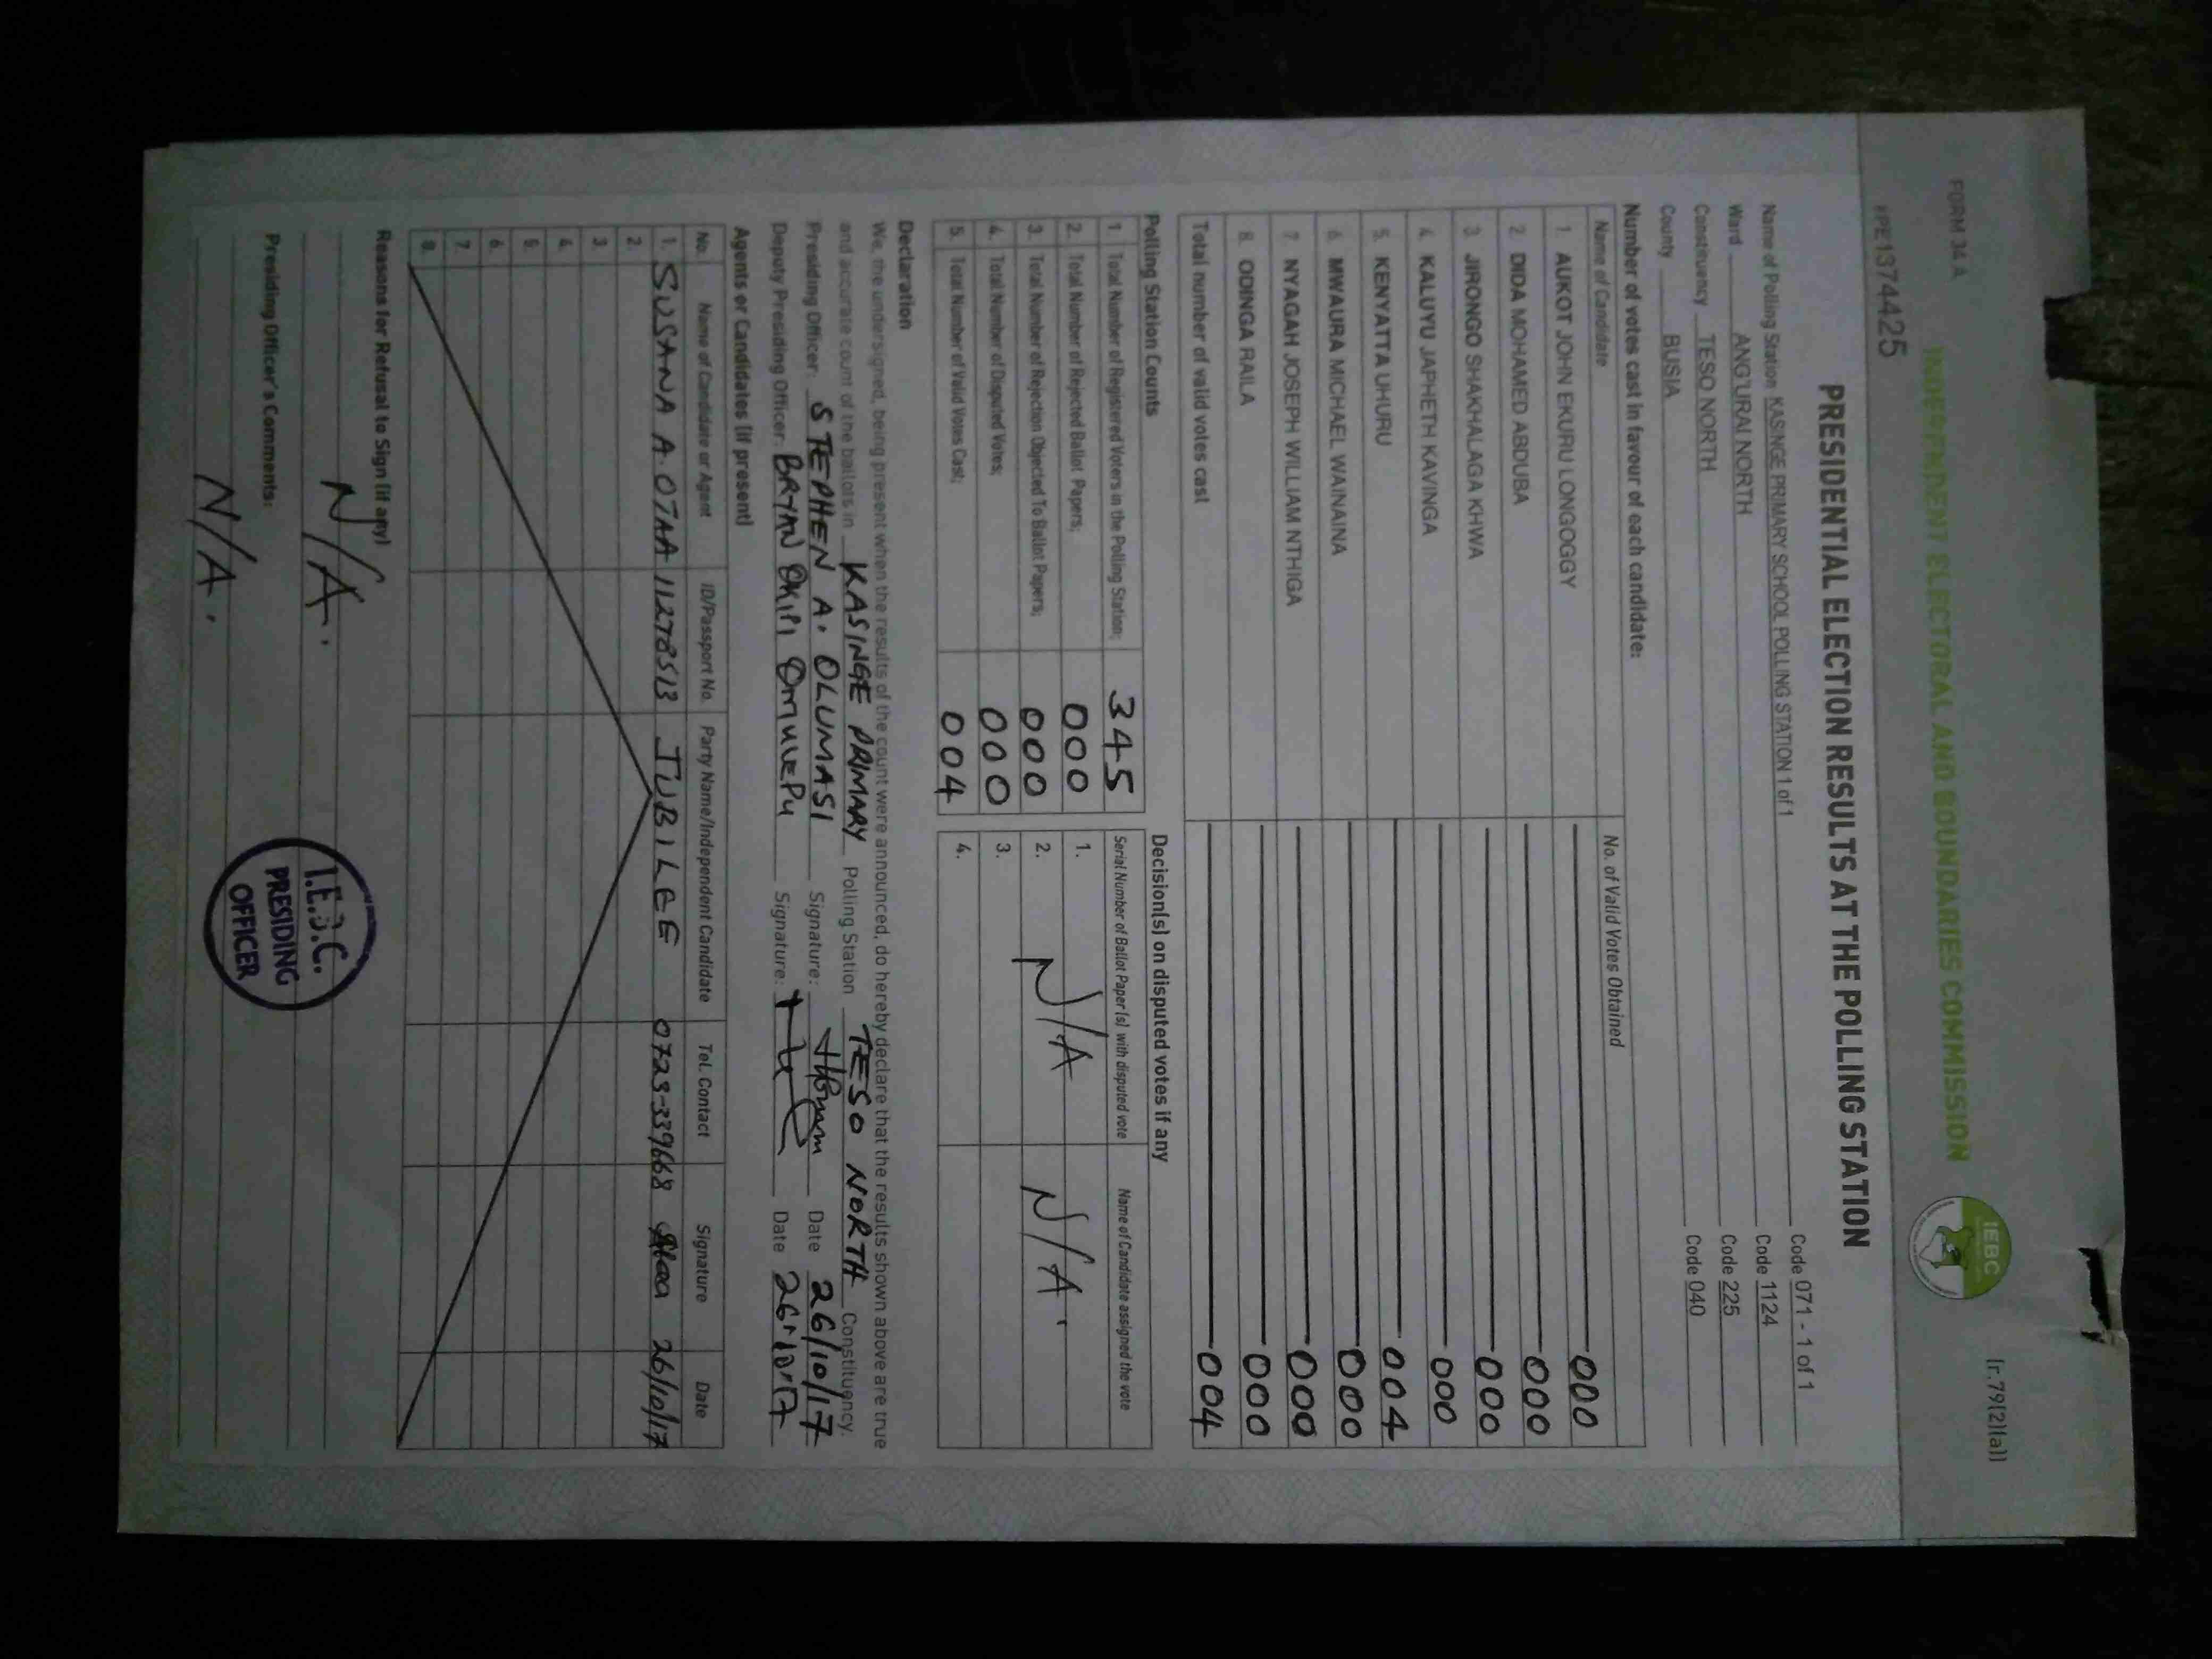 FORM 34 A
[r.79(2)(a)]
INDEPENDENT ELECTORAL AND BOUNDARIES COMMISSION
IEBC
#PE1374425
PRESIDENTIAL ELECTION RESULTS AT THE POLLING STATION
Name of Polling Station KASINGE PRIMARY SCHOOL POLLING STATION 1 of 1 Code 071 - 1 of 1
Ward ANG'URAI NORTH Code 1124
Constituency TESO NORTH Code 225
County BUSIA Code 040
Number of votes cast in favour of each candidate:
Name of Candidate No. of Valid Votes Obtained
1. AUKOT JOHN EKURU LONGOGGY 000
2. DIDA MOHAMED ABDUBA 000
3. JIRONGO SHAKHALAGA KHWA 000
4. KALUYU JAPHETH KAVINGA 000
5. KENYATTA UHURU 004
6. MWAURA MICHAEL WAINAINA 000
7. NYAGAH JOSEPH WILLIAM NTHIGA 000
8. ODINGA RAILA 000
Total number of valid votes cast 004
Polling Station Counts
1. Total Number of Registered Voters in the Polling Station; 345
2. Total Number of Rejected Ballot Papers; 000
3. Total Number of Rejection Objected To Ballot Papers; 000
4. Total Number of Disputed Votes; 000
5. Total Number of Valid Votes Cast; 004
Decision(s) on disputed votes if any
Serial Number of Ballot Paper (s) with disputed vote Name of Candidate assigned the vote
1.
2. N/A N/A
3.
4.
Declaration
We, the undersigned, being present when the results of the count were announced, do hereby declare that the results shown above are true
and accurate count of the ballots in KASINGE PRIMARY Polling Station TESO NORTH Constituency.
Presiding Officer: STEPHEN A. OLUMASI Signature: Date 26/10/17
Deputy Presiding Officer: Signature: Date 26.10.17
Agents or Candidates (if present)
No. Name of Candidate or Agent ID/Passport No. Party Name/Independent Candidate Tel. Contact Signature Date
1. SUSANA A. OTAA 11278513 JUBILEE 0723-339668 26/10/17
2.
3.
4.
5.
6.
7.
8.
Reasons for Refusal to Sign (if any)
N/A.
Presiding Officer's Comments:
N/A.
I.E.B.C.
PRESIDING
OFFICER